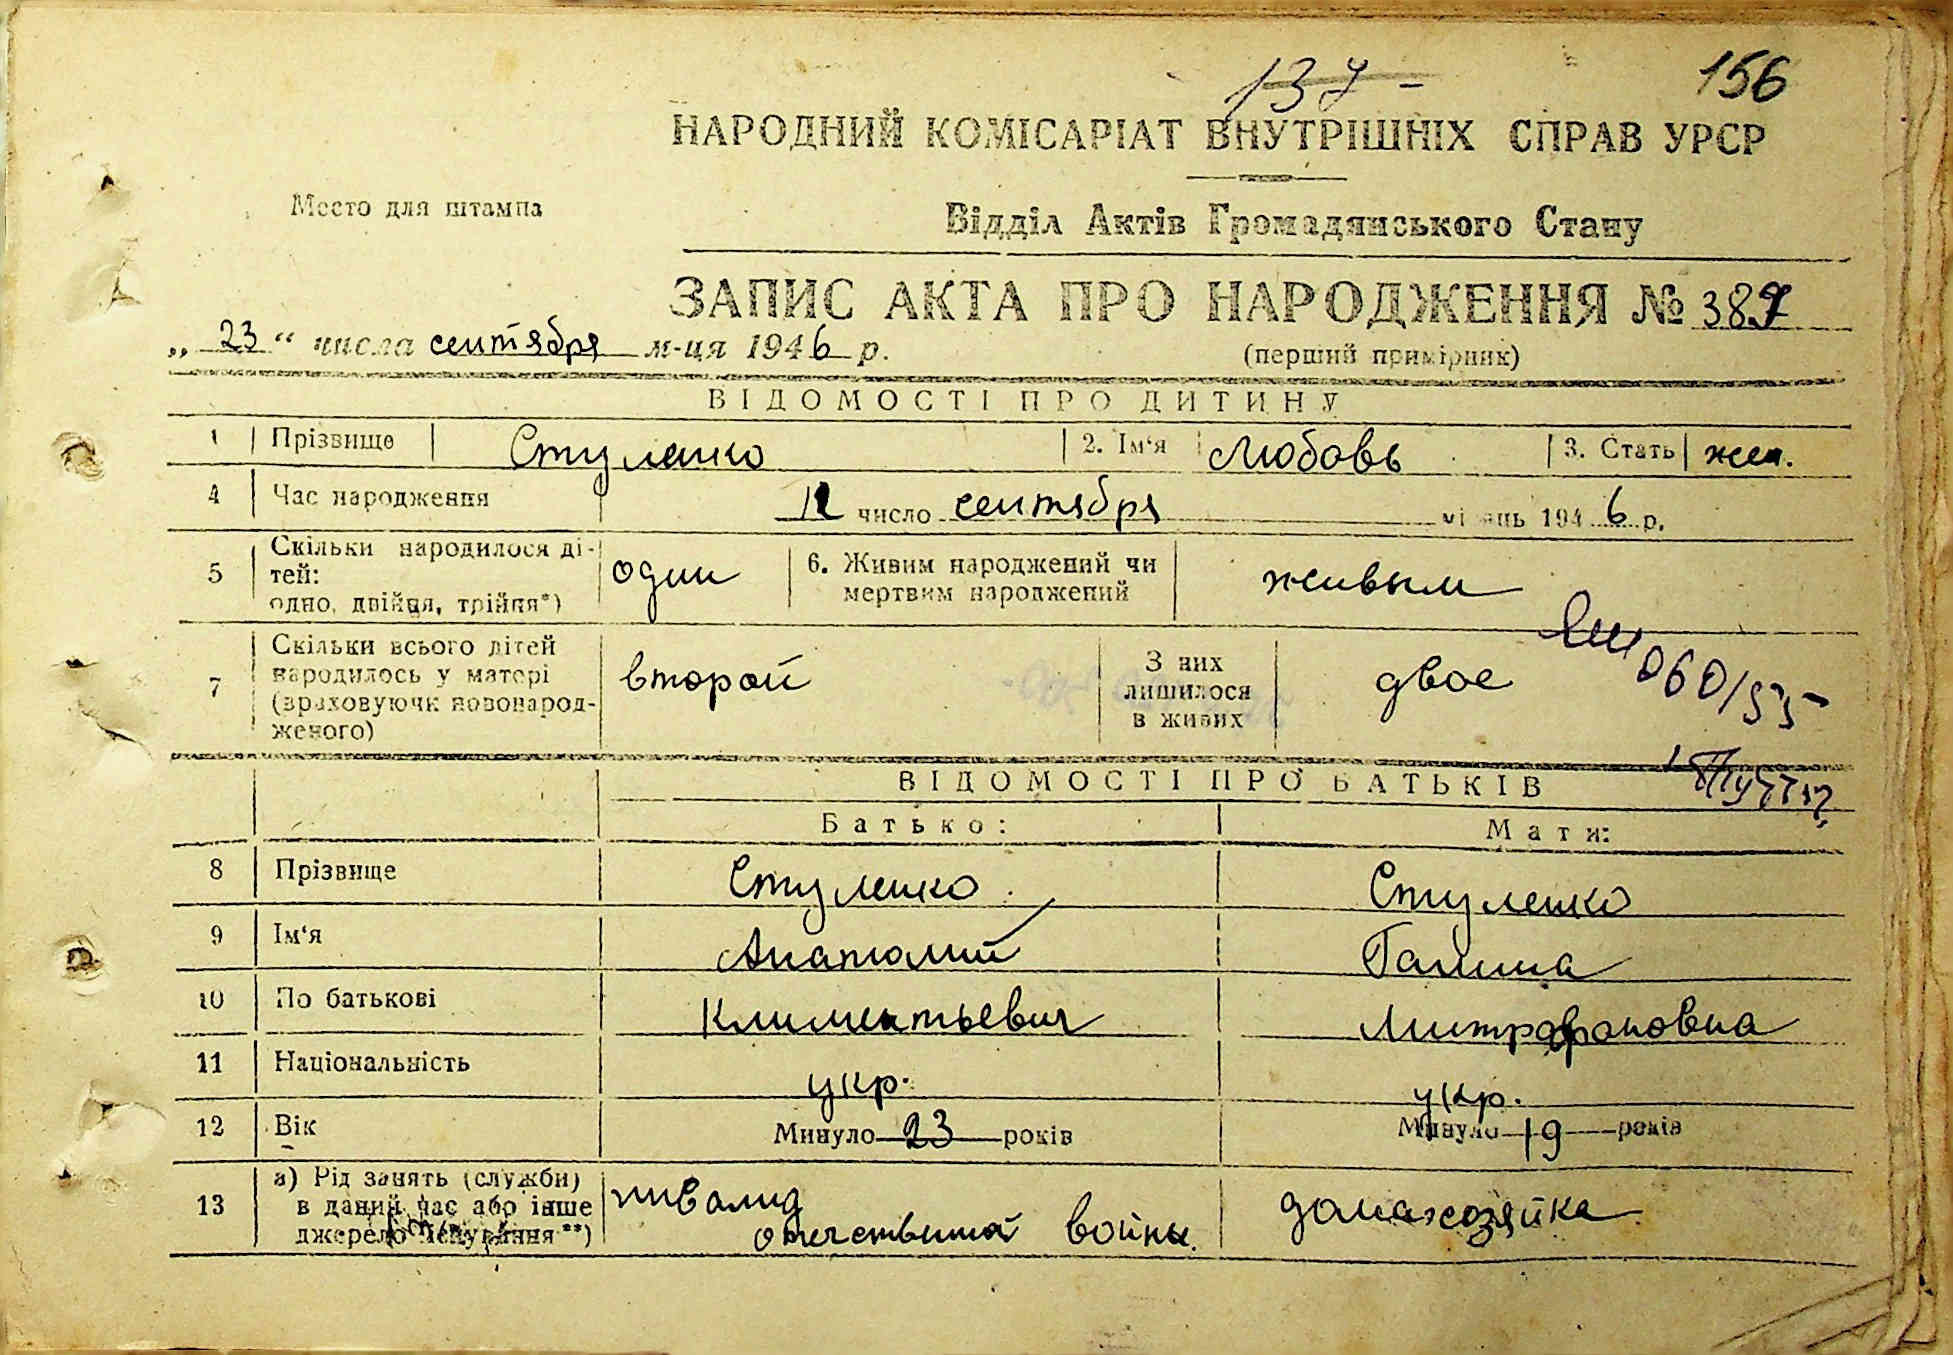 137 -
156
НАРОДНИЙ КОМІСАРІАТ ВНУТРІШНІХ СПРАВ УРСР
Место для штампа
Відділ Актів Громадянського Стану
ЗАПИС АКТА ПРО НАРОДЖЕННЯ № 387
„ 23 “ числа сентября м-ця 1946 р.
(перший примірник)
ВІДОМОСТІ ПРО ДИТИНУ
1 Прізвище Стулешко 2. Ім‘я Любовь 3. Стать жен.
4 Час народження 12 число сентября місяць 1946 р.
5 Скільки народилося ді-
тей:
одно, двійця, трійця*)
один
6. Живим народжений чи
мертвим народжений
живым
7 Скільки всього дітей
народилось у матері
(враховуючи новонарод-
женого)
второй
З них
лишилося
в живих
двое
060/535
ВІДОМОСТІ ПРО БАТЬКІВ
Батько: Мати:
8 Прізвище Стулешко Стулешко
9 Ім‘я Анатолий Галина
10 По батькові Климентьевич Митрофановна
11 Національність укр. укр.
12 Вік Минуло 23 років Минуло 19 років
13 а) Рід занять (служби)
в даний час або інше
джерело існування**)
инвалид
отечественной войны.
домахозяйка